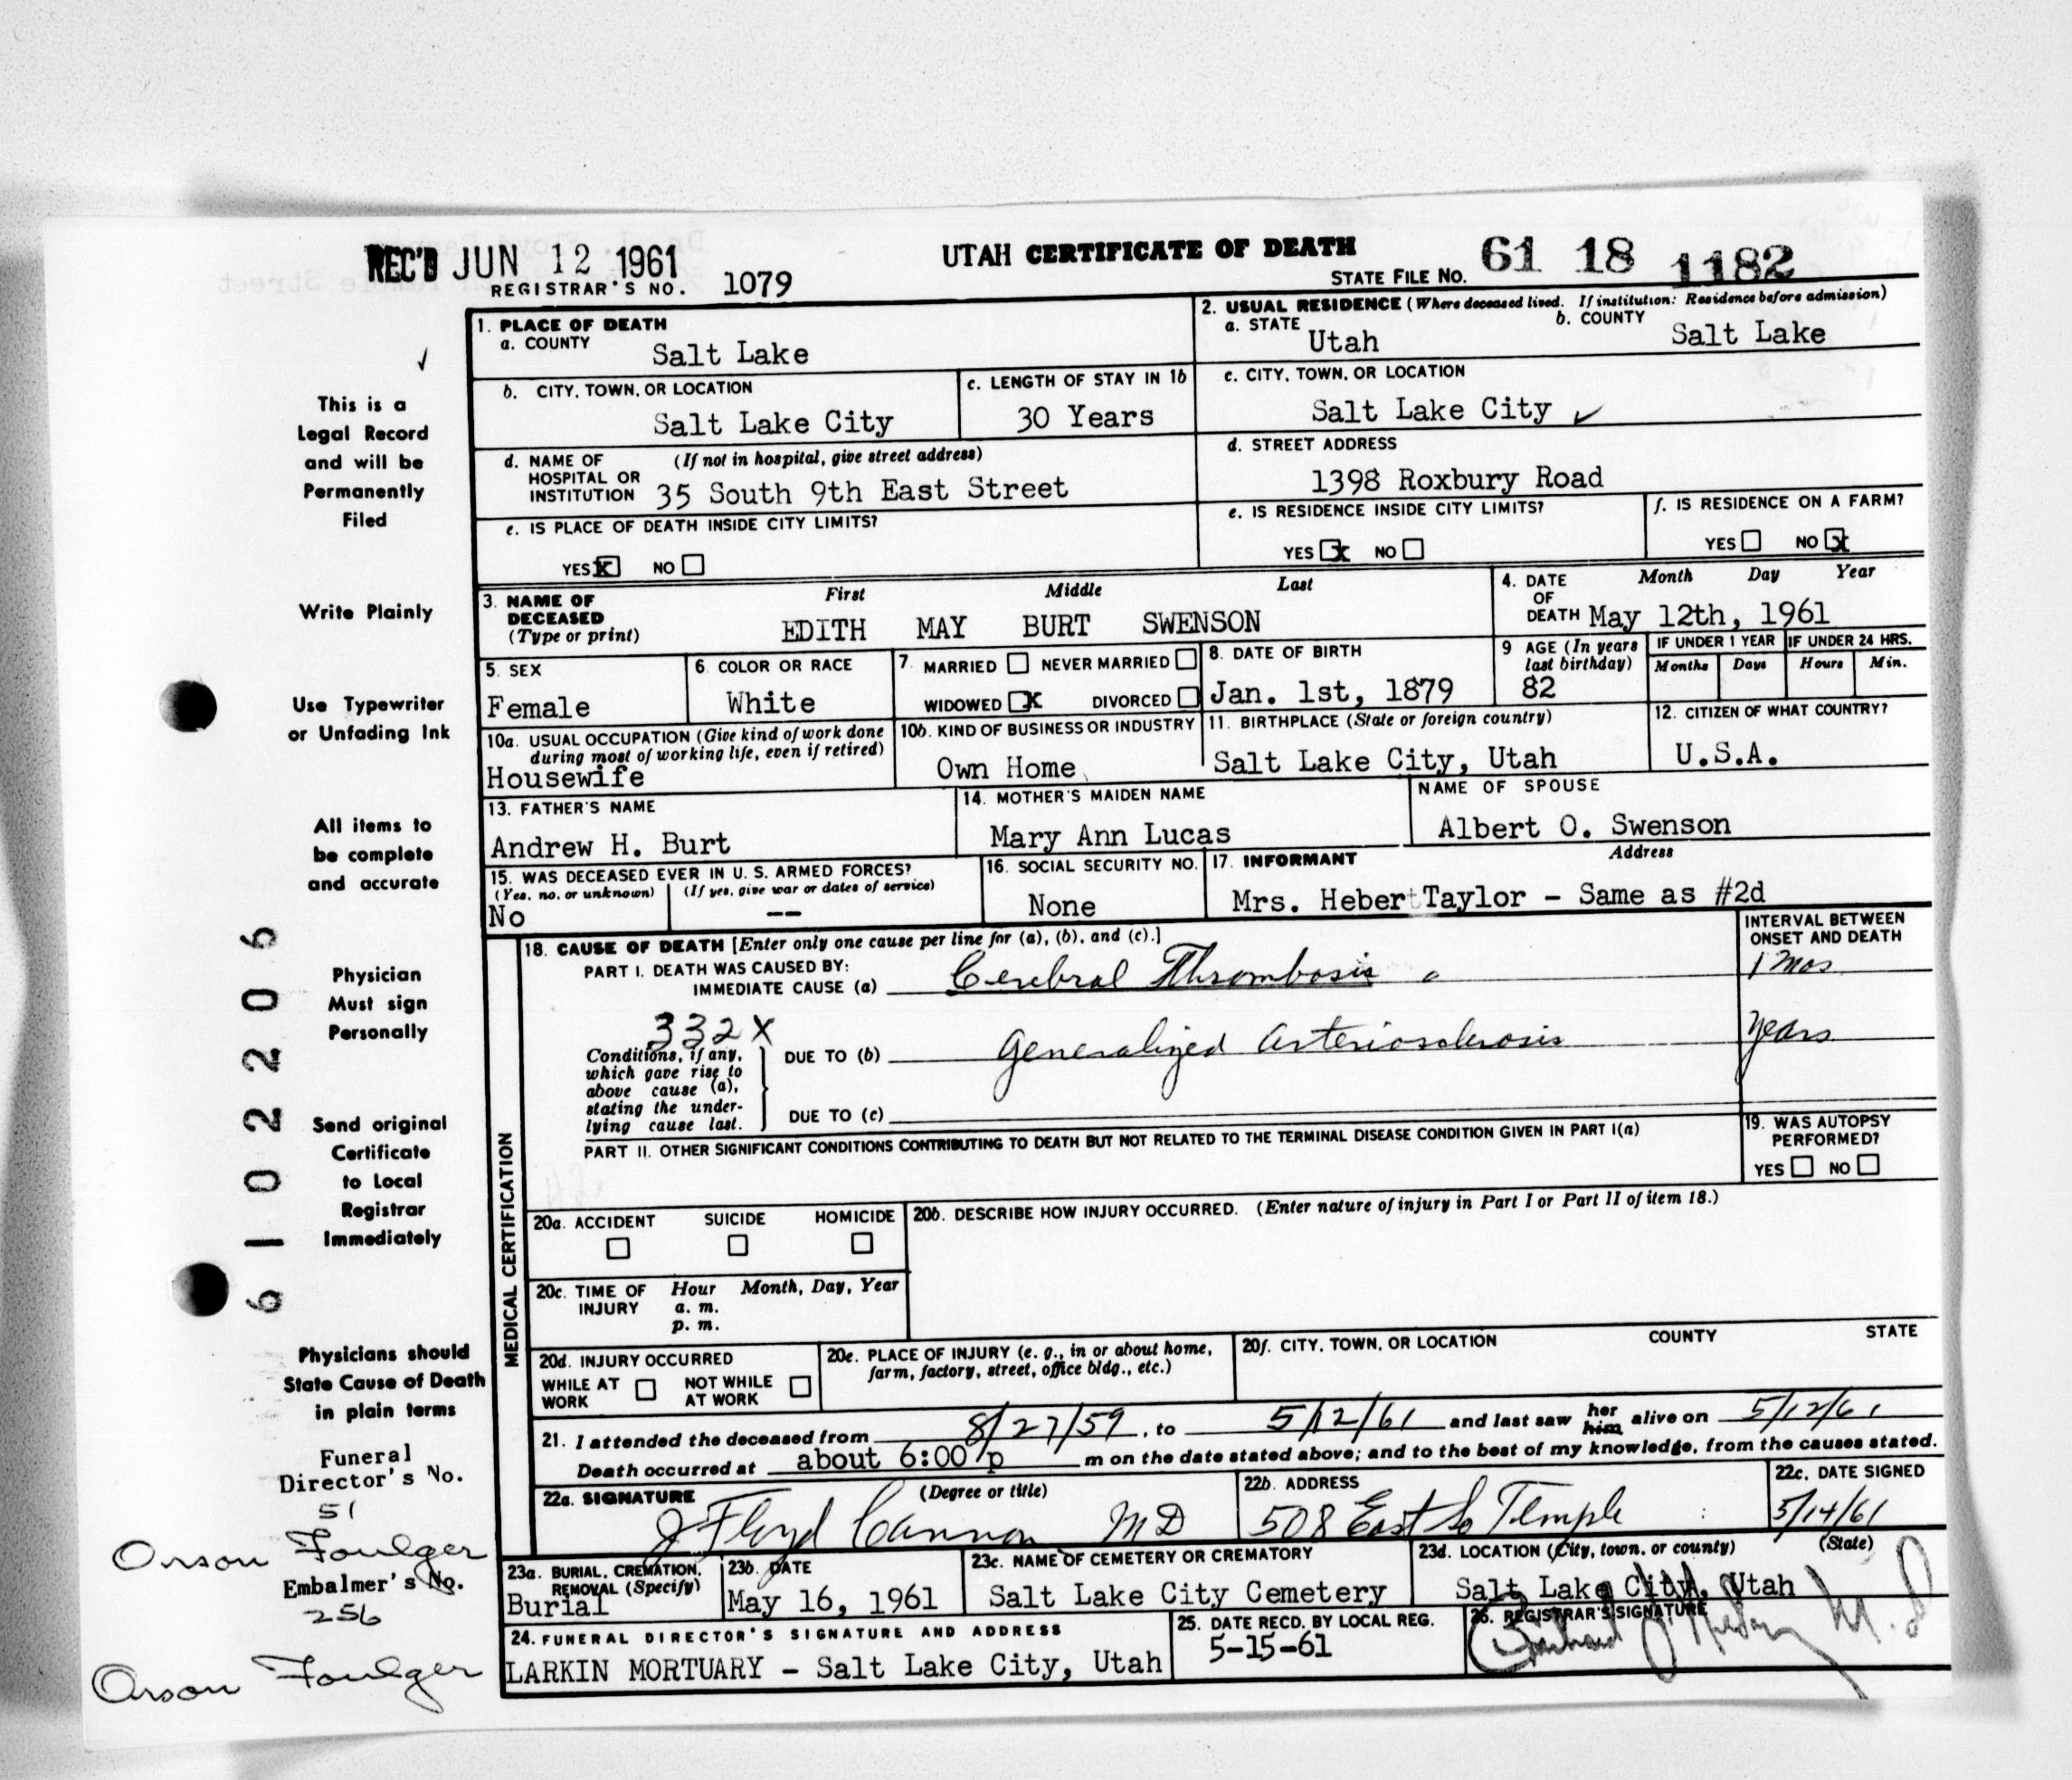 REC'D JUN 12 1961
UTAH CERTIFICATE OF DEATH
STATE FILE NO. 61 18 1182
REGISTRAR'S NO. 1079
1. PLACE OF DEATH
a. COUNTY
Salt Lake
2. USUAL RESIDENCE (Where deceased lived. If institution: Residence before admission)
a. STATE
Utah
b. COUNTY
Salt Lake
b. CITY, TOWN, OR LOCATION
Salt Lake City
c. LENGTH OF STAY IN 1b
30 Years
c. CITY, TOWN, OR LOCATION
Salt Lake City
d. NAME OF HOSPITAL OR INSTITUTION
(If not in hospital, give street address)
35 South 9th East Street
d. STREET ADDRESS
1398 Roxbury Road
e. IS PLACE OF DEATH INSIDE CITY LIMITS?
YES X NO
e. IS RESIDENCE INSIDE CITY LIMITS?
YES X NO
f. IS RESIDENCE ON A FARM?
YES NO X
3. NAME OF DECEASED
(Type or print)
First Middle Last
EDITH MAY BURT SWENSON
4. DATE OF DEATH
Month Day Year
May 12th, 1961
5. SEX
Female
6. COLOR OR RACE
White
7. MARRIED NEVER MARRIED
WIDOWED X DIVORCED
8. DATE OF BIRTH
Jan. 1st, 1879
9 AGE (In years last birthday)
82
IF UNDER 1 YEAR
Months Days
IF UNDER 24 HRS.
Hours Min.
10a. USUAL OCCUPATION (Give kind of work done during most of working life, even if retired)
Housewife
10b. KIND OF BUSINESS OR INDUSTRY
Own Home
11. BIRTHPLACE (State or foreign country)
Salt Lake City, Utah
12. CITIZEN OF WHAT COUNTRY?
U.S.A.
13. FATHER'S NAME
Andrew H. Burt
14. MOTHER'S MAIDEN NAME
Mary Ann Lucas
NAME OF SPOUSE
Albert O. Swenson
15. WAS DECEASED EVER IN U. S. ARMED FORCES?
(Yes, no, or unknown) (If yes, give war or dates of service)
No --
16. SOCIAL SECURITY NO.
None
17. INFORMANT Address
Mrs. Heber Taylor - Same as #2d
MEDICAL CERTIFICATION
18. CAUSE OF DEATH [Enter only one cause per line for (a), (b), and (c).]
PART I. DEATH WAS CAUSED BY:
IMMEDIATE CAUSE (a) Cerebral Thrombosis
INTERVAL BETWEEN ONSET AND DEATH
1 Mos
332X
Conditions, if any, which gave rise to above cause (a), stating the underlying cause last.
DUE TO (b) Generalized Arteriosclerosis
years
DUE TO (c)
PART II. OTHER SIGNIFICANT CONDITIONS CONTRIBUTING TO DEATH BUT NOT RELATED TO THE TERMINAL DISEASE CONDITION GIVEN IN PART I(a)
19. WAS AUTOPSY PERFORMED?
YES NO
20a. ACCIDENT SUICIDE HOMICIDE
20b. DESCRIBE HOW INJURY OCCURRED. (Enter nature of injury in Part I or Part II of item 18.)
20c. TIME OF INJURY
Hour Month, Day, Year
a. m.
p. m.
20d. INJURY OCCURRED
WHILE AT WORK NOT WHILE AT WORK
20e. PLACE OF INJURY (e. g., in or about home, farm, factory, street, office bldg., etc.)
20f. CITY, TOWN, OR LOCATION COUNTY STATE
21. I attended the deceased from 8/27/59, to 5/12/61 and last saw her him alive on 5/12/61
Death occurred at about 6:00 p m on the date stated above; and to the best of my knowledge, from the causes stated.
22a. SIGNATURE (Degree or title)
J Floyd Cannon MD
22b. ADDRESS
508 East So Temple
22c. DATE SIGNED
5/14/61
23a. BURIAL, CREMATION, REMOVAL (Specify)
Burial
23b. DATE
May 16, 1961
23c. NAME OF CEMETERY OR CREMATORY
Salt Lake City Cemetery
23d. LOCATION (City, town, or county) (State)
Salt Lake City, Utah
24. FUNERAL DIRECTOR'S SIGNATURE AND ADDRESS
LARKIN MORTUARY - Salt Lake City, Utah
25. DATE RECD. BY LOCAL REG.
5-15-61
26. REGISTRAR'S SIGNATURE
M.D
This is a
Legal Record
and will be
Permanently
Filed
Write Plainly
Use Typewriter
or Unfading Ink
All items to
be complete
and accurate
Physician
Must sign
Personally
Send original
Certificate
to Local
Registrar
Immediately
Physicians should
State Cause of Death
in plain terms
Funeral
Director's No.
51
Orson Foulger
Embalmer's No.
256
Orson Foulger
61022206